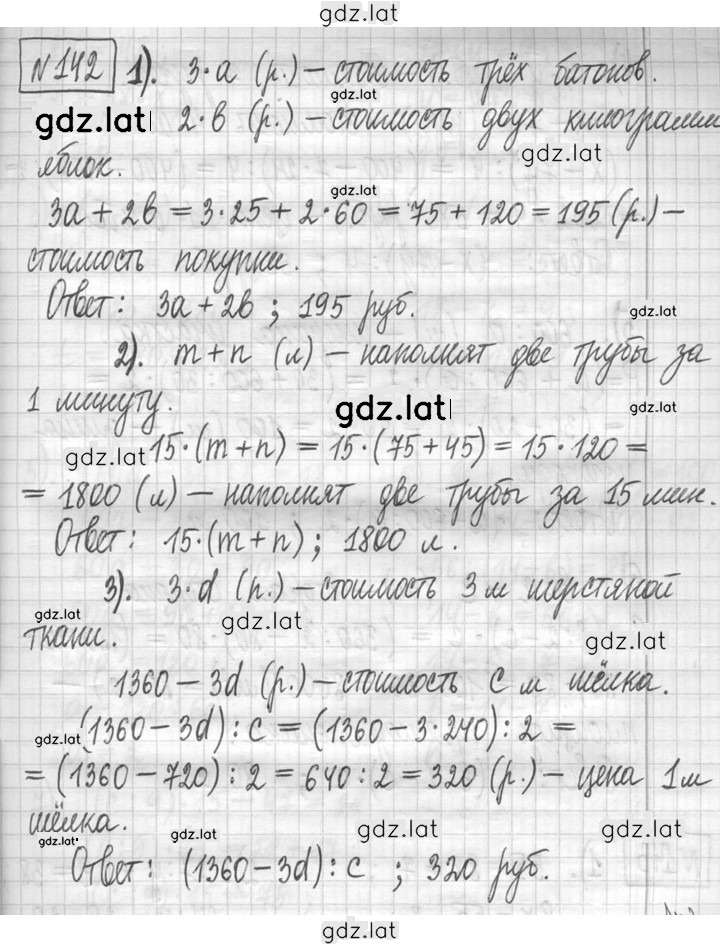 gdz.lat
№142 1). 3·a (р.) – стоимость трёх батонов.
gdz.lat
gdz.lat 2·b (р.) – стоимость двух килограмм
gdz.lat
яблок.
gdz.lat
3a + 2b = 3·25 + 2·60 = 75 + 120 = 195 (р.) –
стоимость покупки.
Ответ: 3a + 2b ; 195 руб.
gdz.lat
2). m + n (л) – наполнят две трубы за
1 минуту.
gdz.lat gdz.lat
gdz.lat 15·(m + n) = 15·(75 + 45) = 15·120 =
= 1800 (л) – наполнят две трубы за 15 мин.
Ответ: 15·(m + n) ; 1800 л.
3). 3·d (р.) – стоимость 3 м шерстяной
gdz.lat gdz.lat
ткани.
gdz.lat
1360 – 3d (р.) – стоимость c м шёлка.
gdz.lat (1360 – 3d) : c = (1360 – 3·240) : 2 =
= (1360 – 720) : 2 = 640 : 2 = 320 (р.) – цена 1 м
шёлка.
gdz.lat gdz.lat gdz.lat gdz.lat
Ответ: (1360 – 3d) : c ; 320 руб.
gdz.lat